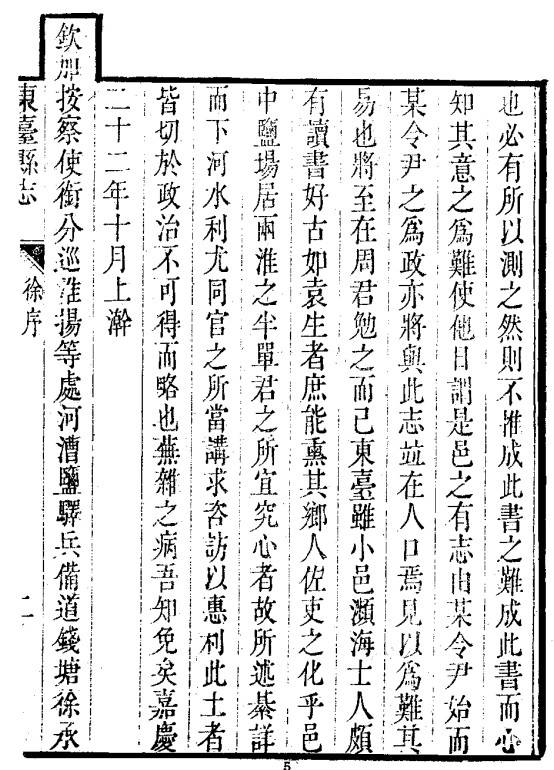 也必有所以測之然則不惟成此書之難成此書而心
知其意之爲難使他日謂是邑之有志由某令尹始而
某令尹之爲政亦將與此志竝在人口焉見以爲難其
易也將至在周君勉之而已東臺雖小邑瀕海士人頗
有讀書好古如袁生者庶能熏其鄉人佐吏之化乎邑
中鹽場居兩淮之半單君之所宜究心者故所述綦詳
而下河水利尤同官之所當講求咨訪以惠利此土者
皆切於政治不可得而略也蕪雜之病吾知免矣嘉慶
二十二年十月上澣
欽加按察使銜分巡淮揚等處河漕鹽驛兵備道錢塘徐承
東臺縣志 徐序 二
5